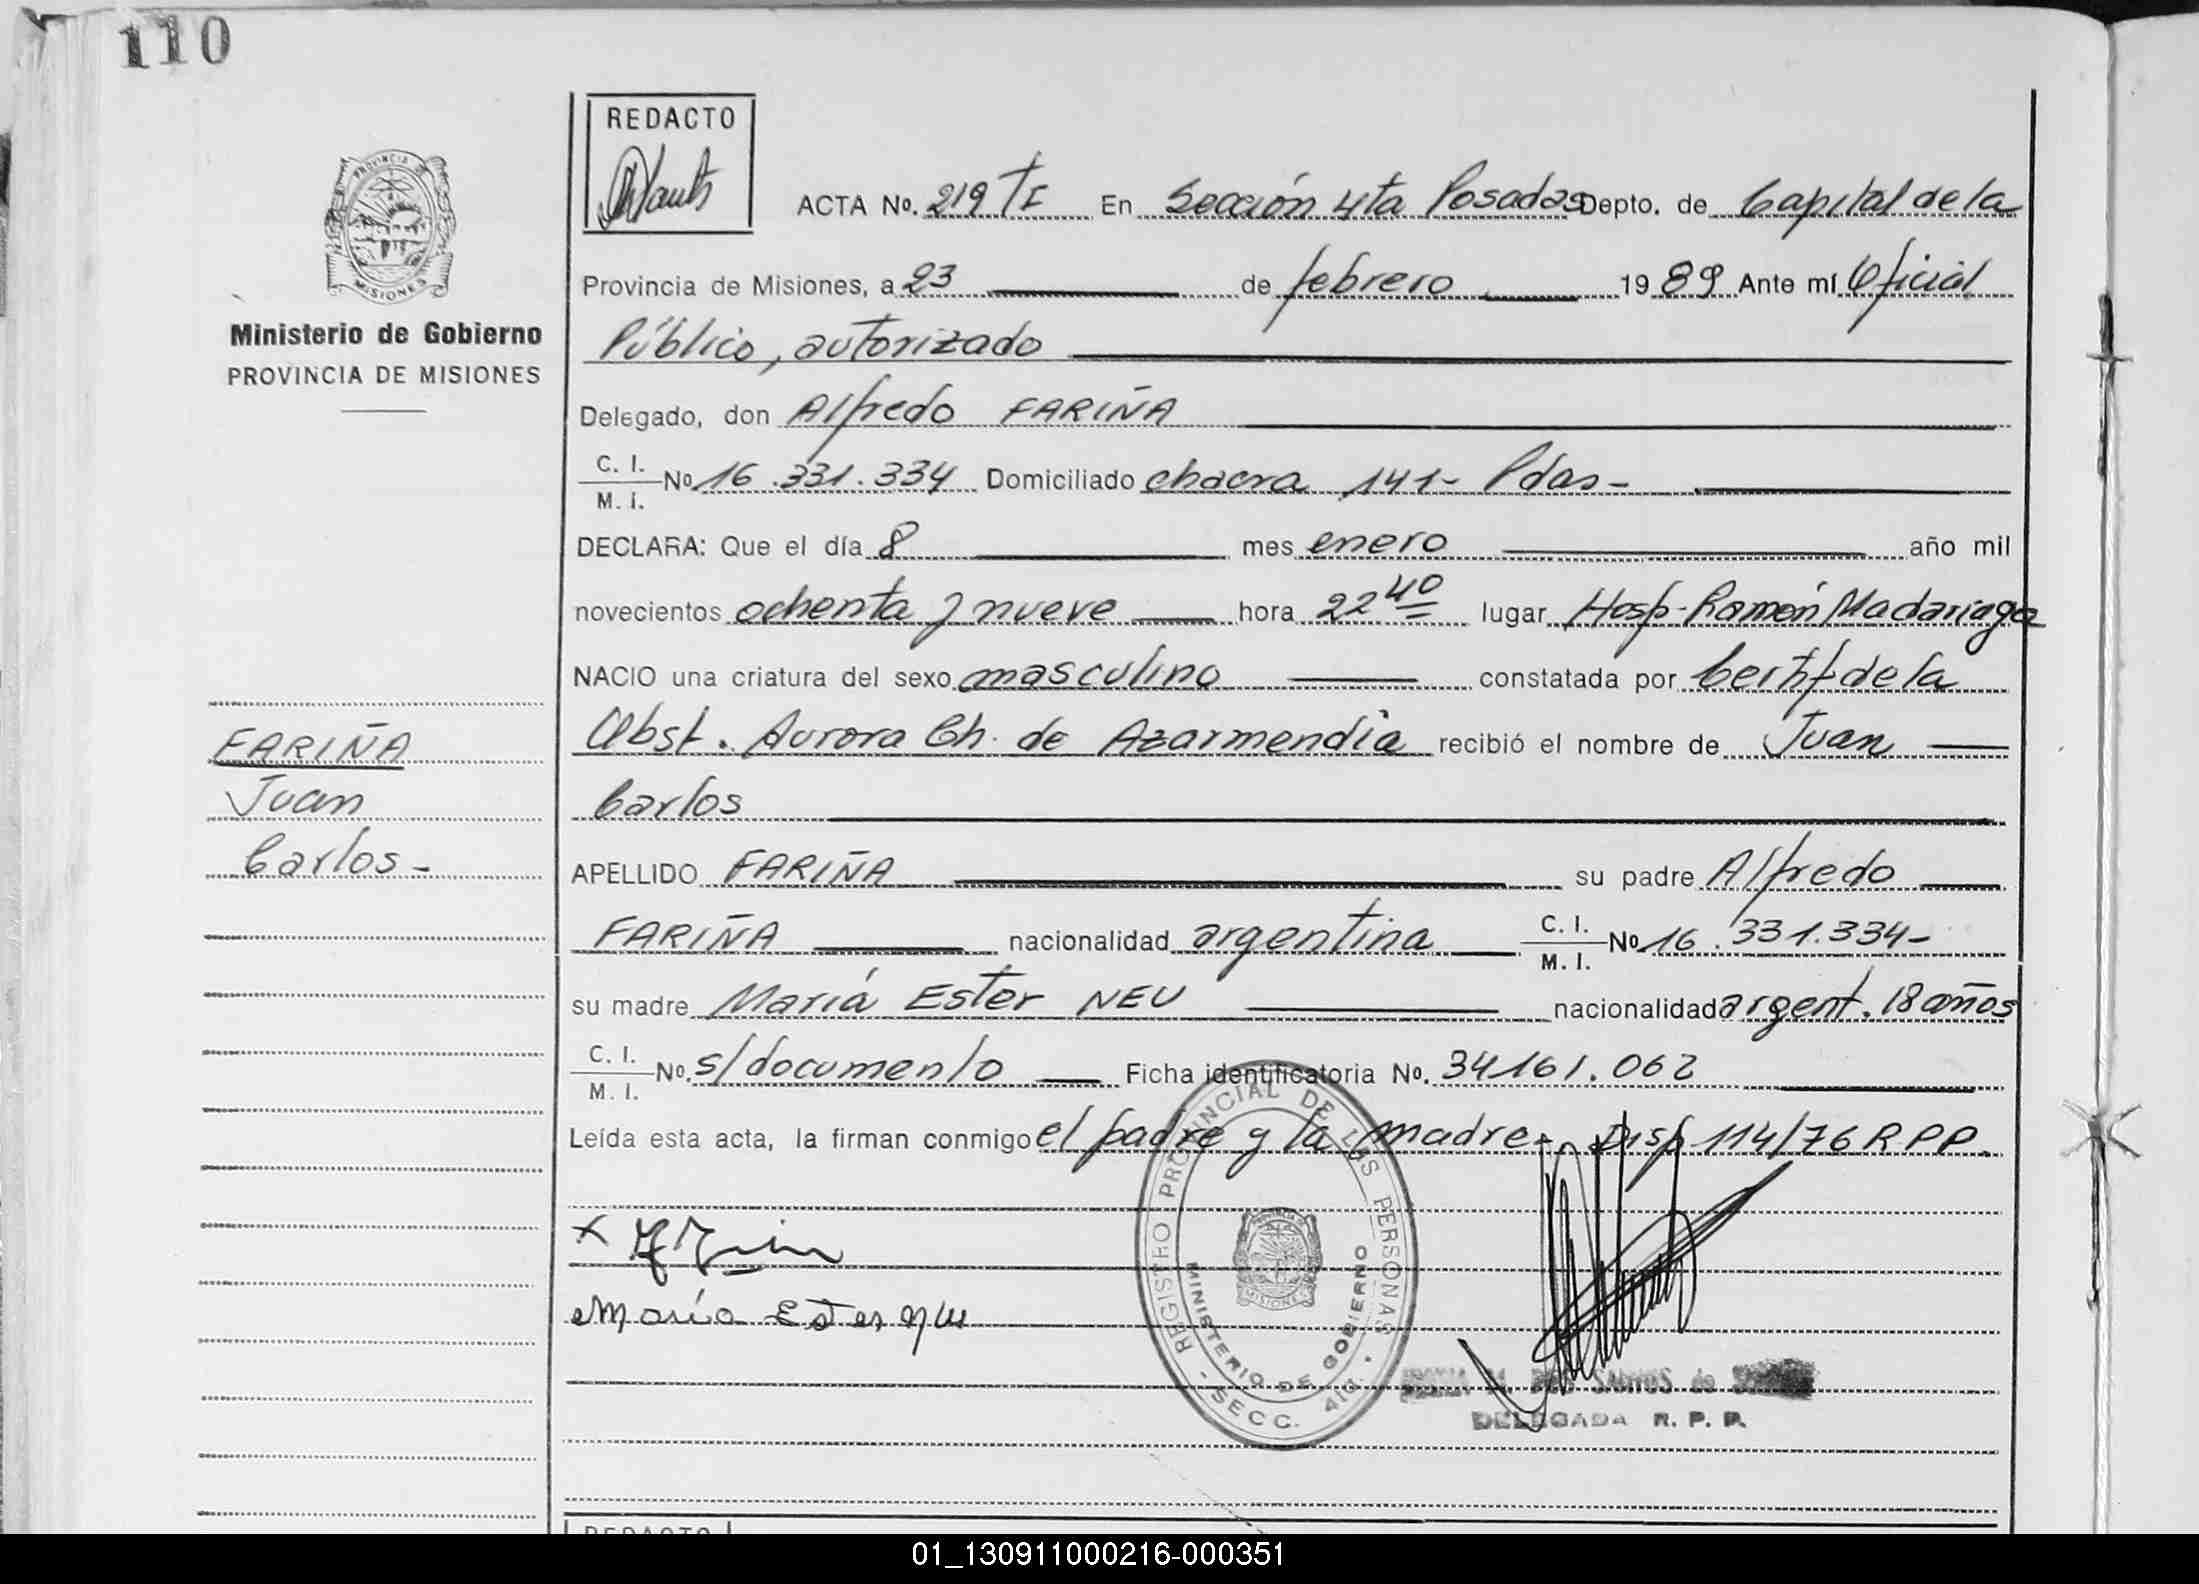 110
REDACTO
ACTA No. 219 TI En Sección 4ta Posadas Depto. de Capital de la
Provincia de Misiones, a 23 de febrero 1989 Ante mí Oficial
Público, autorizado
Delegado, don Alfredo FARIÑA
C. I. / M. I. No 16.331.334 Domiciliado chacra 141- Pdas-
DECLARA: Que el día 8 mes enero año mil
novecientos ochenta y nueve hora 22 40 lugar Hosp. Ramón Madariaga
NACIO una criatura del sexo masculino constatada por Certif de la
Obst. Aurora Ch. de Azarmendia recibió el nombre de Juan
Carlos
APELLIDO FARIÑA su padre Alfredo
FARIÑA nacionalidad argentina C. I. / M. I. No 16.331.334-
su madre María Ester NEU nacionalidad argent. 18 años
C. I. / M. I. No. s/documento Ficha identificatoria No. 34161.062
Leída esta acta, la firman conmigo el padre y la madre- Disp 114/76 R P P.
María Ester Neu
PROVINCIA DE
MISIONES
Ministerio de Gobierno
PROVINCIA DE MISIONES
FARIÑA
Juan
Carlos-
REGISTRO PROVINCIAL DE LAS PERSONAS
MINISTERIO DE GOBIERNO
- SECC. 4ta. -
MISIONES
DOS SANTOS de
DELEGADA R. P. P.
REDACTO
01_130911000216-000351